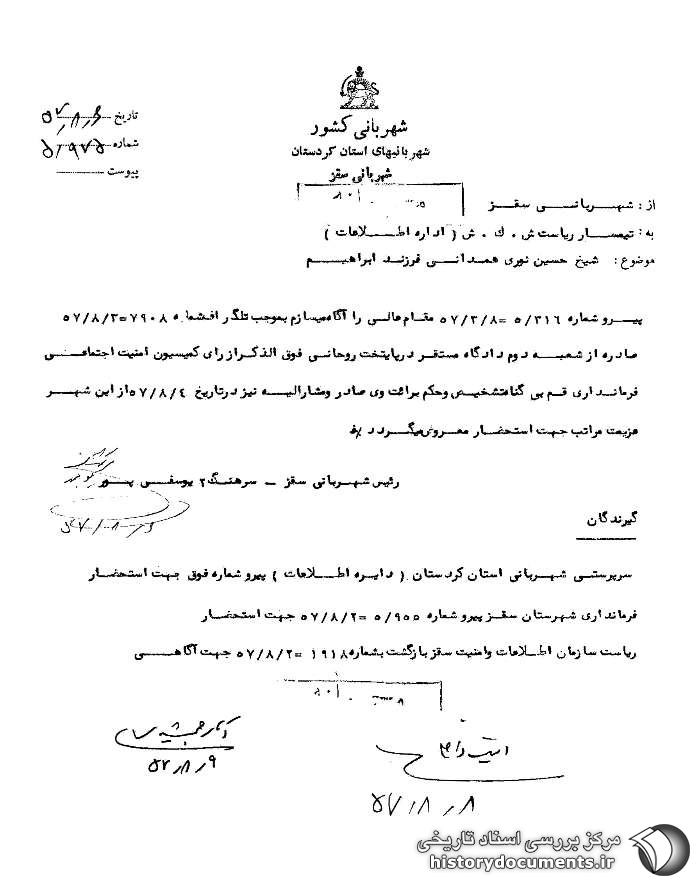 شهربانی کشور
شهربانیهای استان کردستان
شهربانی سقز
تاریخ
شماره
پیوست
از : شهربانی سقز
به : تیمسار ریاست ش . ک . ش ( اداره اطلاعات )
موضوع : شیخ حسین نوری همدانی فرزند ابراهیم
پیرو شماره ۵/۳۱۶ =۵۷/۳/۸ مقام عالی را آگاه میسازم بموجب تلگرافشماره ۷۹۰۸=۵۷/۸/۳
صادره از شعبه دوم دادگاه مستقر در پایتخت روحانی فوق الذکر از رای کمیسیون امنیت اجتماعی
فرمانداری قم بی گناه تشخیص و حکم برائت وی صادر و مشارالیه نیز در تاریخ ۵۷/۸/۴ از این شهر
عزیمت مراتب جهت استحضار معروض میگردد
رئیس شهربانی سقز ــ سرهنگ ۲ یوسفی پور
۵۷/۸/۶
گیرندگان
سرپرستی شهربانی استان کردستان ( دایره اطلاعات ) پیرو شماره فوق جهت استحضار
فرمانداری شهرستان سقز پیرو شماره ۵/۹۵۵ =۵۷/۸/۲ جهت استحضار
ریاست سازمان اطلاعات وامنیت سقز بازگشت بشماره ۱۹۱۸ =۵۷/۸/۲ جهت آگاهی
۵۷/۸/۹
۵۷/۸/۸
مرکز بررسی اسناد تاریخی
historydocuments.ir